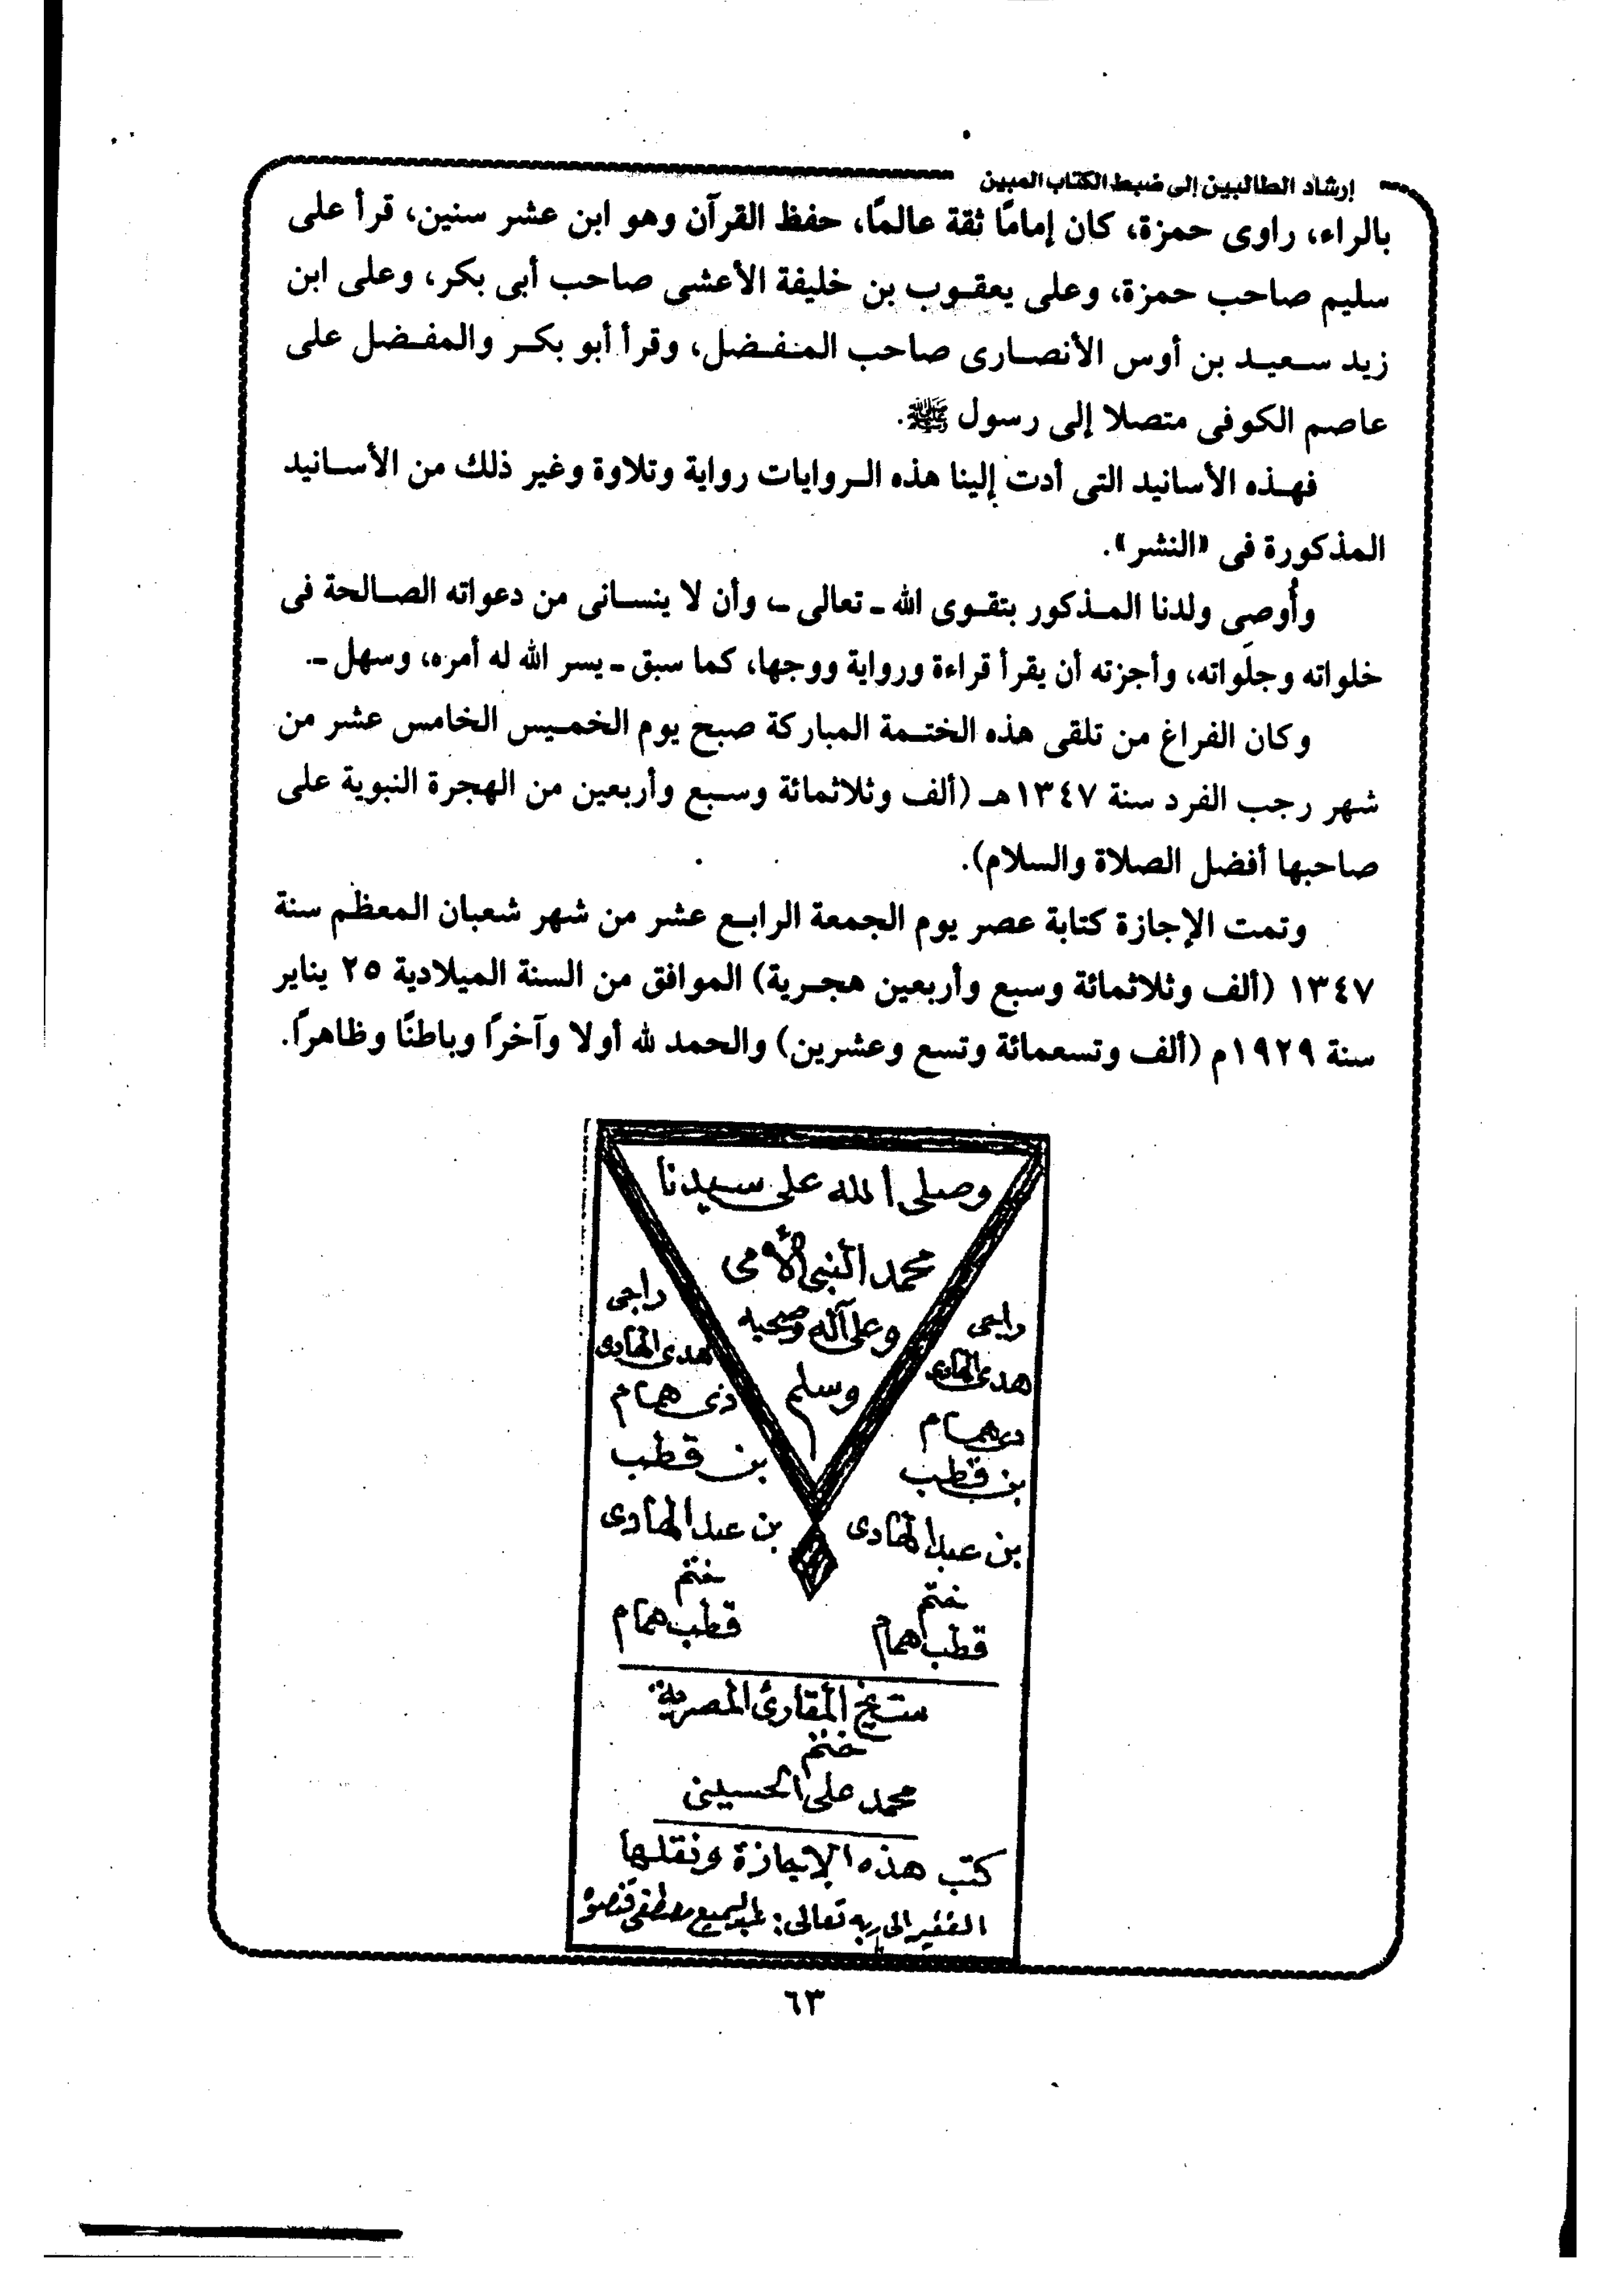 إرشاد الطالبين إلى ضبط الكتاب المبين
بالراء، راوى حمزة، كان إمامًا ثقة عالمًا، حفظ القرآن وهو ابن عشر سنين، قرأ على
سليم صاحب حمزة، وعلى يعقوب بن خليفة الأعشى صاحب أبى بكر، وعلى ابن
زيد سعيد بن أوس الأنصارى صاحب المنفضل، وقرأ أبو بكر والمفضل على
عاصم الكوفى متصلا إلى رسول ﷺ.
فهذه الأسانيد التى أدت إلينا هذه الروايات رواية وتلاوة وغير ذلك من الأسانيد
المذكورة فى «النشر».
وأُوصِى ولدنا المذكور بتقوى الله ـ تعالى ـ، وأن لا ينسانى من دعواته الصالحة فى
خلواته وجلَواته، وأجزته أن يقرأ قراءة ورواية ووجها، كما سبق ـ يسر الله له أمره، وسهل ـ.
وكان الفراغ من تلقى هذه الختمة المباركة صبح يوم الخميس الخامس عشر من
شهر رجب الفرد سنة ١٣٤٧هـ (ألف وثلاثمائة وسبع وأربعين من الهجرة النبوية على
صاحبها أفضل الصلاة والسلام).
وتمت الإجازة كتابة عصر يوم الجمعة الرابع عشر من شهر شعبان المعظم سنة
١٣٤٧ (ألف وثلاثمائة وسبع وأربعين هجرية) الموافق من السنة الميلادية ٢٥ يناير
سنة ١٩٢٩م (ألف وتسعمائة وتسع وعشرين) والحمد لله أولا وآخرًا وباطنًا وظاهرًا.
وصلى الله على سيدنا
محمد النبى الأمى
وعلى آله وصحبه
وسلم
راجى
هدى الهادى
ذى همام
بن قطب
بن عبد الهادى
ختم
قطب همام
راجى
هدى الهادى
ذى همام
بن قطب
بن عبد الهادى
ختم
قطب همام
شيخ المقارئ المصرية
ختم
محمد على الحسينى
كتب هذه الإجازة ونقلها
الفقير إلى ربه تعالى: عبد السميع مصطفى قنصوه
٦٣